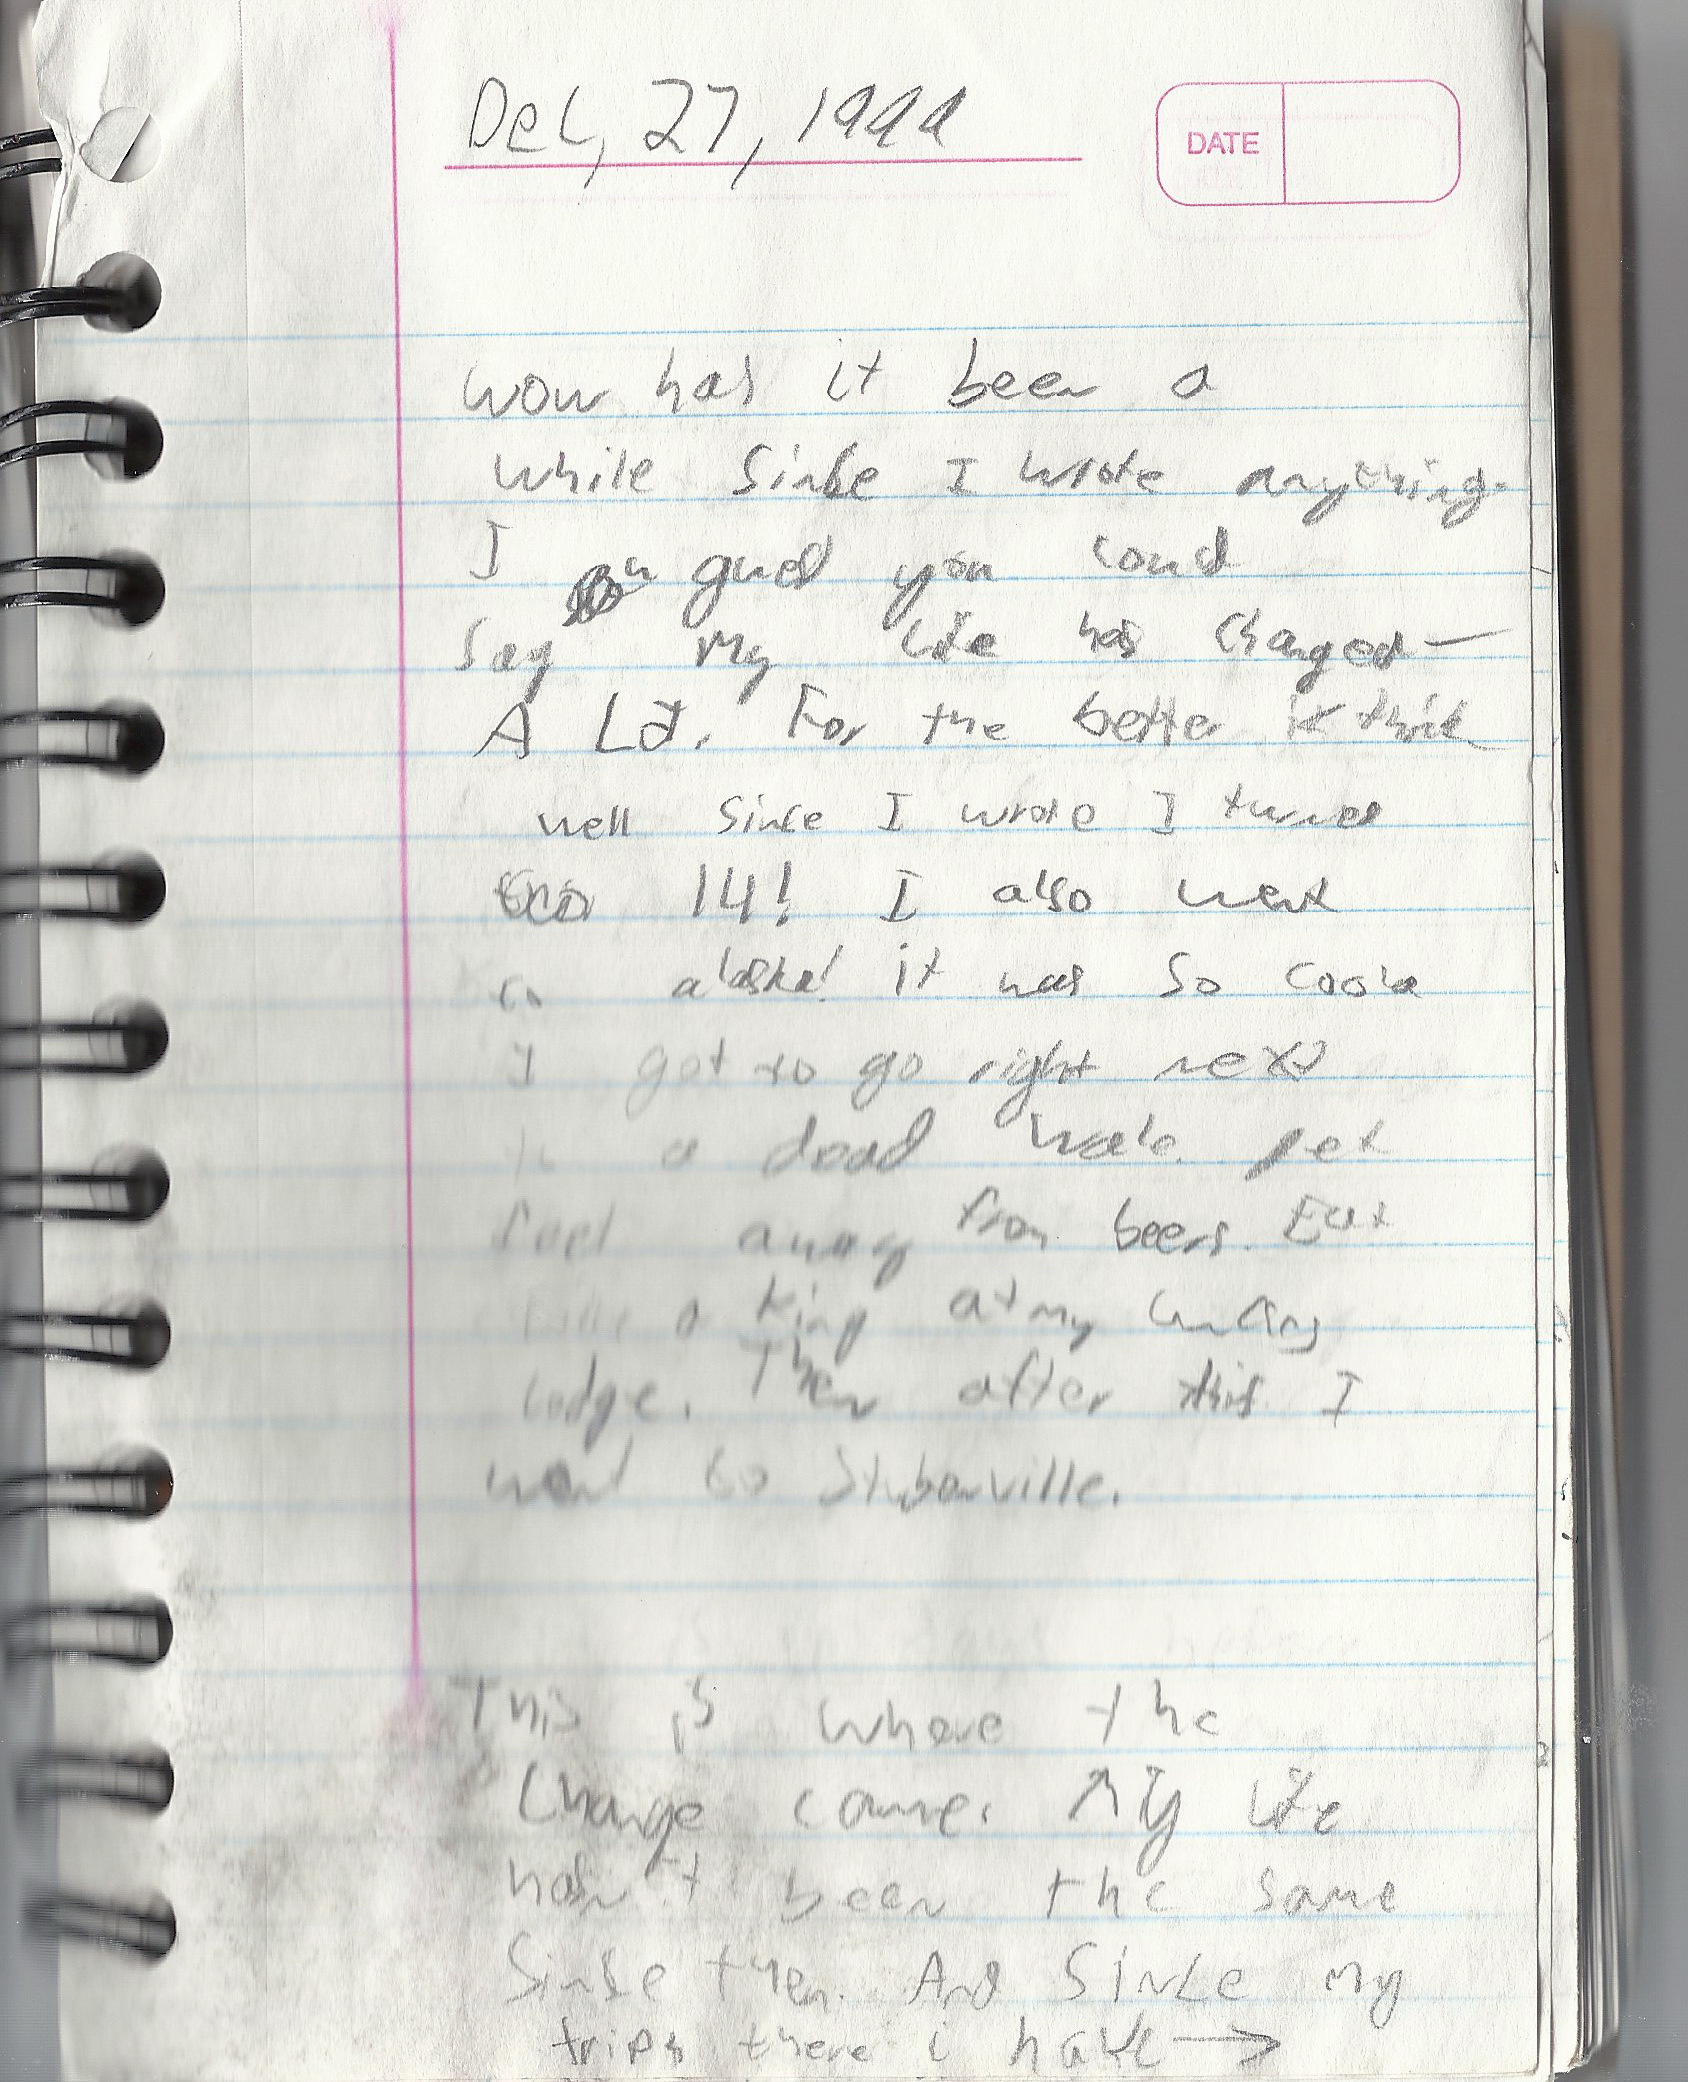 Dec, 27, 1999
DATE
wow has it been a
while since I wrote anything.
I gues you could
say my life has changed—
A Lot. For the better i think
well since I wrote I turned
14! I also went
to alaska! it was so coole
I got to go right next
to a dead wale. pet
feet away from beers. Eat
like a king at my
Lodge. Then after this I
went to Stubenville.
This is where the
Change came. My life
hasn't been the same
Since then. And Since my
trips there i have →